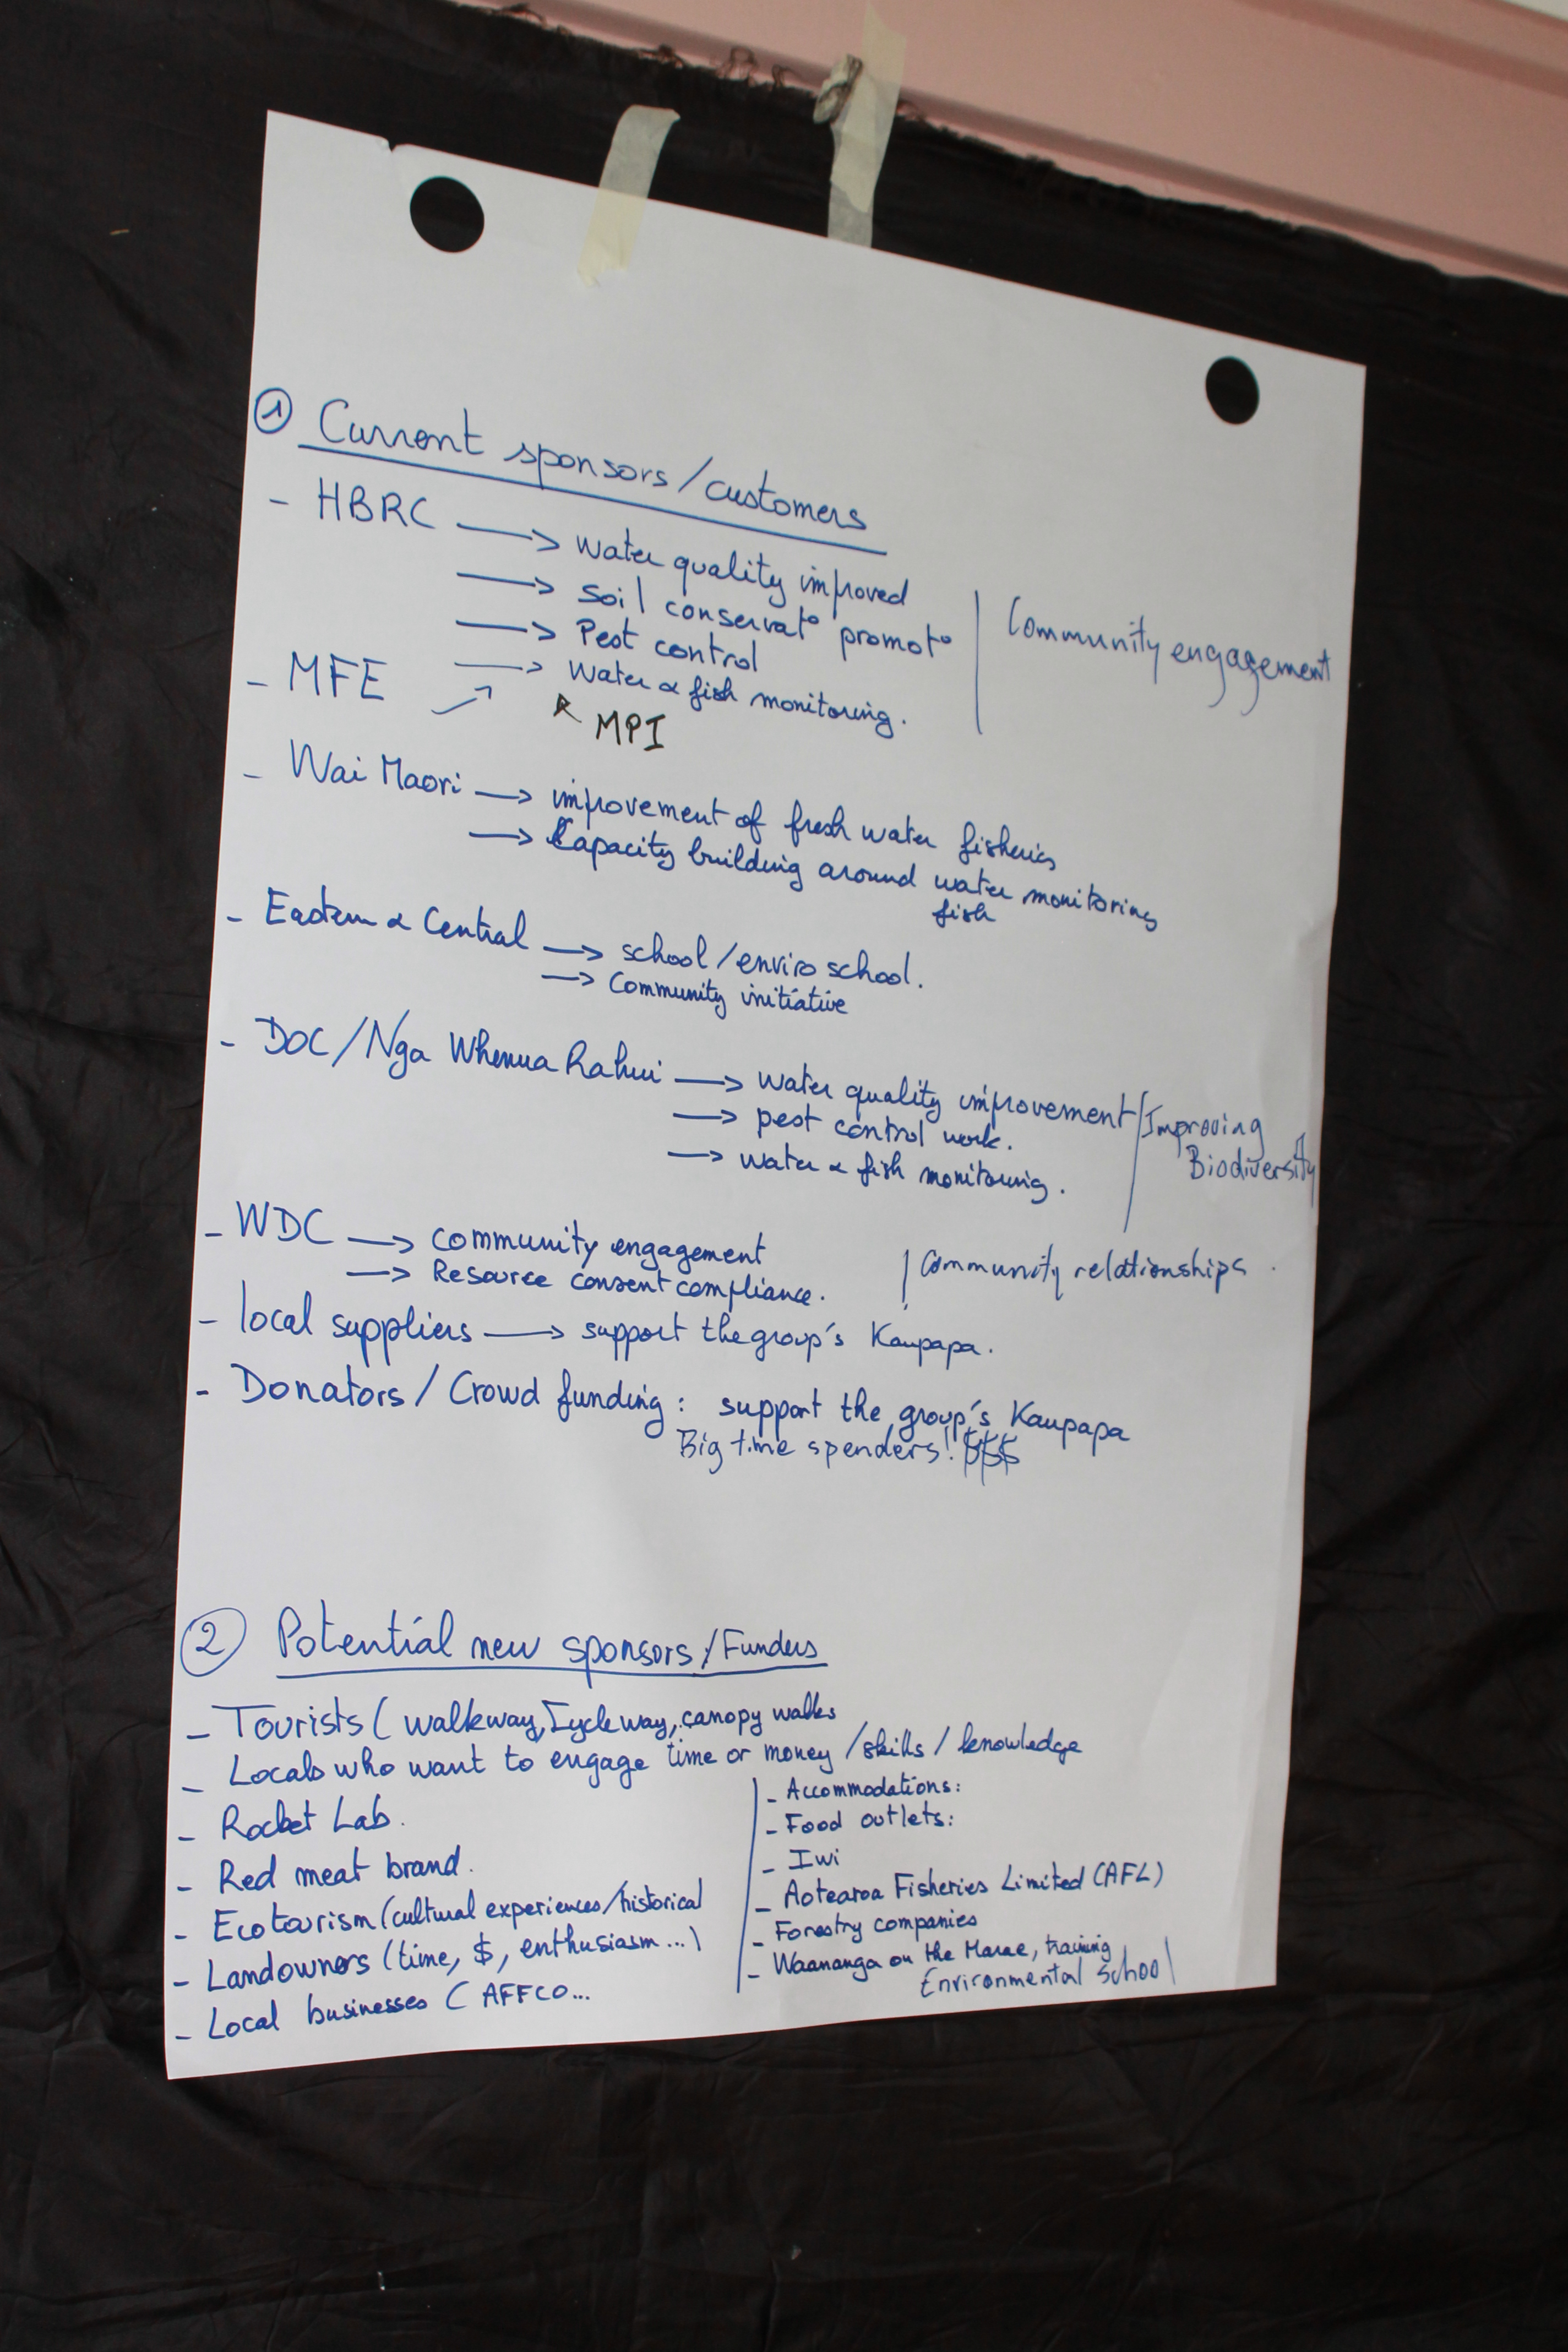 ① Current sponsors/customers
- HBRC → water quality improved
→ Soil conservat° promot°
→ Pest control
Community engagement
- MFE → Water & fish monitoring.
MPI
- Wai Maori → improvement of fresh water fisheries
→ Capacity building around water monitoring
fish
- Eastern & Central → school/enviro school.
→ Community initiative
- DOC/Nga Whenua Rahui → water quality improvement
→ pest control work.
→ water & fish monitoring.
Improving
Biodiversity
- WDC → community engagement
→ Resource consent compliance.
Community relationships.
- local suppliers → support the group's Kaupapa.
- Donators/Crowd funding: support the group's Kaupapa
Big time spenders! $$$
② Potential new sponsors/Funders
- Tourists (walkway, Cycleway, canopy walks
- Locals who want to engage time or money/skills/knowledge
- Rocket Lab.
- Red meat brand.
- Ecotourism (cultural experiences/historical
- Landowners (time, $, enthusiasm...)
- Local businesses (AFFCO...
- Accommodations:
- Food outlets:
- Iwi
- Aotearoa Fisheries Limited (AFL)
- Forestry companies
- Waananga on the Marae, training
Environmental School